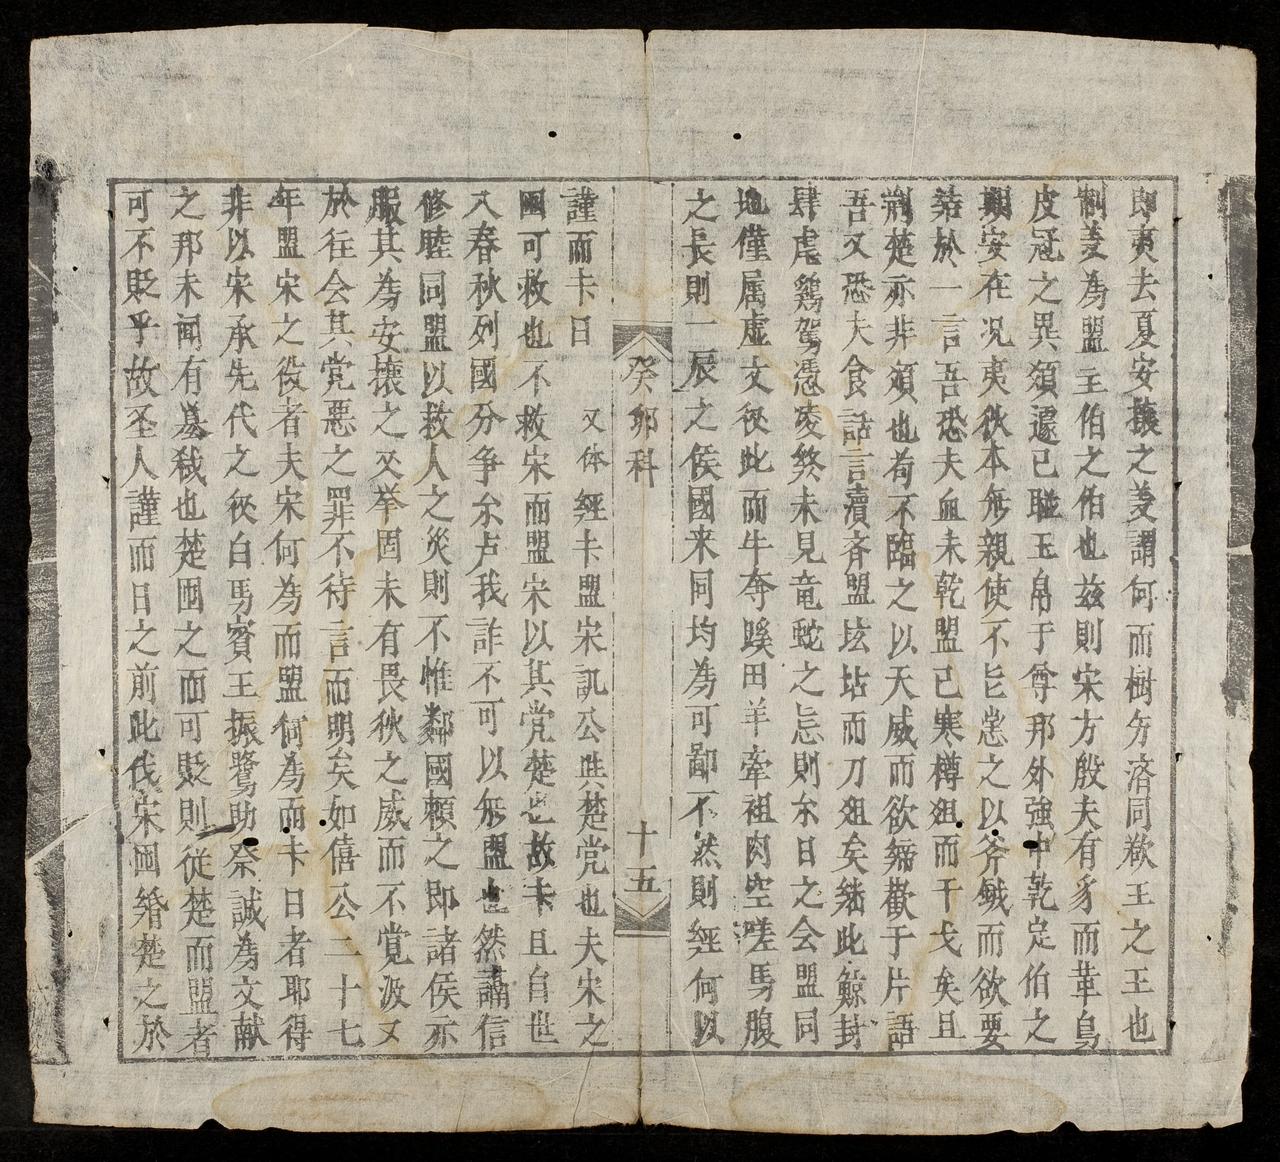 即夷去夏安攘之義謂何而樹分済同歡王之王也
制義為盟主伯之伯也兹則宋方殷夫有豸而革舃
皮冠之異須遽已聨玉帛于尊那外強中乾定伯之
期安在况夷狄本無親使不㫖耑之以斧鉞而欲要
結於一言吾恐夫血未乾盟已寒樽俎而干戈矣且
荆楚亦非須也苟不臨之以天威而欲締歡于片語
吾又恐夫食話言瀆斉盟坫而刀俎矣継此鯨封
肆虐鷄駕憑凌然未見竜蛇之忌則尓日之会盟同
地僅属虚文彼此而牛奪蹊田羊牽袒肉空嗟馬腹
之長則一辰之矦國来同均為可鄙不然則經何以
癸卯科
十五
謹而卞日
又体 經卞盟宋訊公此楚党也夫宋之
囯可救也不救宋而盟宋以其党楚也故卞且自世
入春秋列國分争尓卢我詐不可以無盟也然講信
修睦同盟以救人之災則不惟鄰國頼之即諸侯亦
服其為安攘之义挙固未有畏狄之威而不覚汲又
於往会其党悪之罪不待言而明矣如僖公二十七
年盟宋之役者夫宋何為而盟何為而卞日者耶得
非以宋承先代之後白馬賓王振鷺助祭誠為文献
之那未闻有墓弑也楚囯之而可貶則従楚而盟者
可不貶乎故圣人謹而日之前此伐宋囯緍楚之於